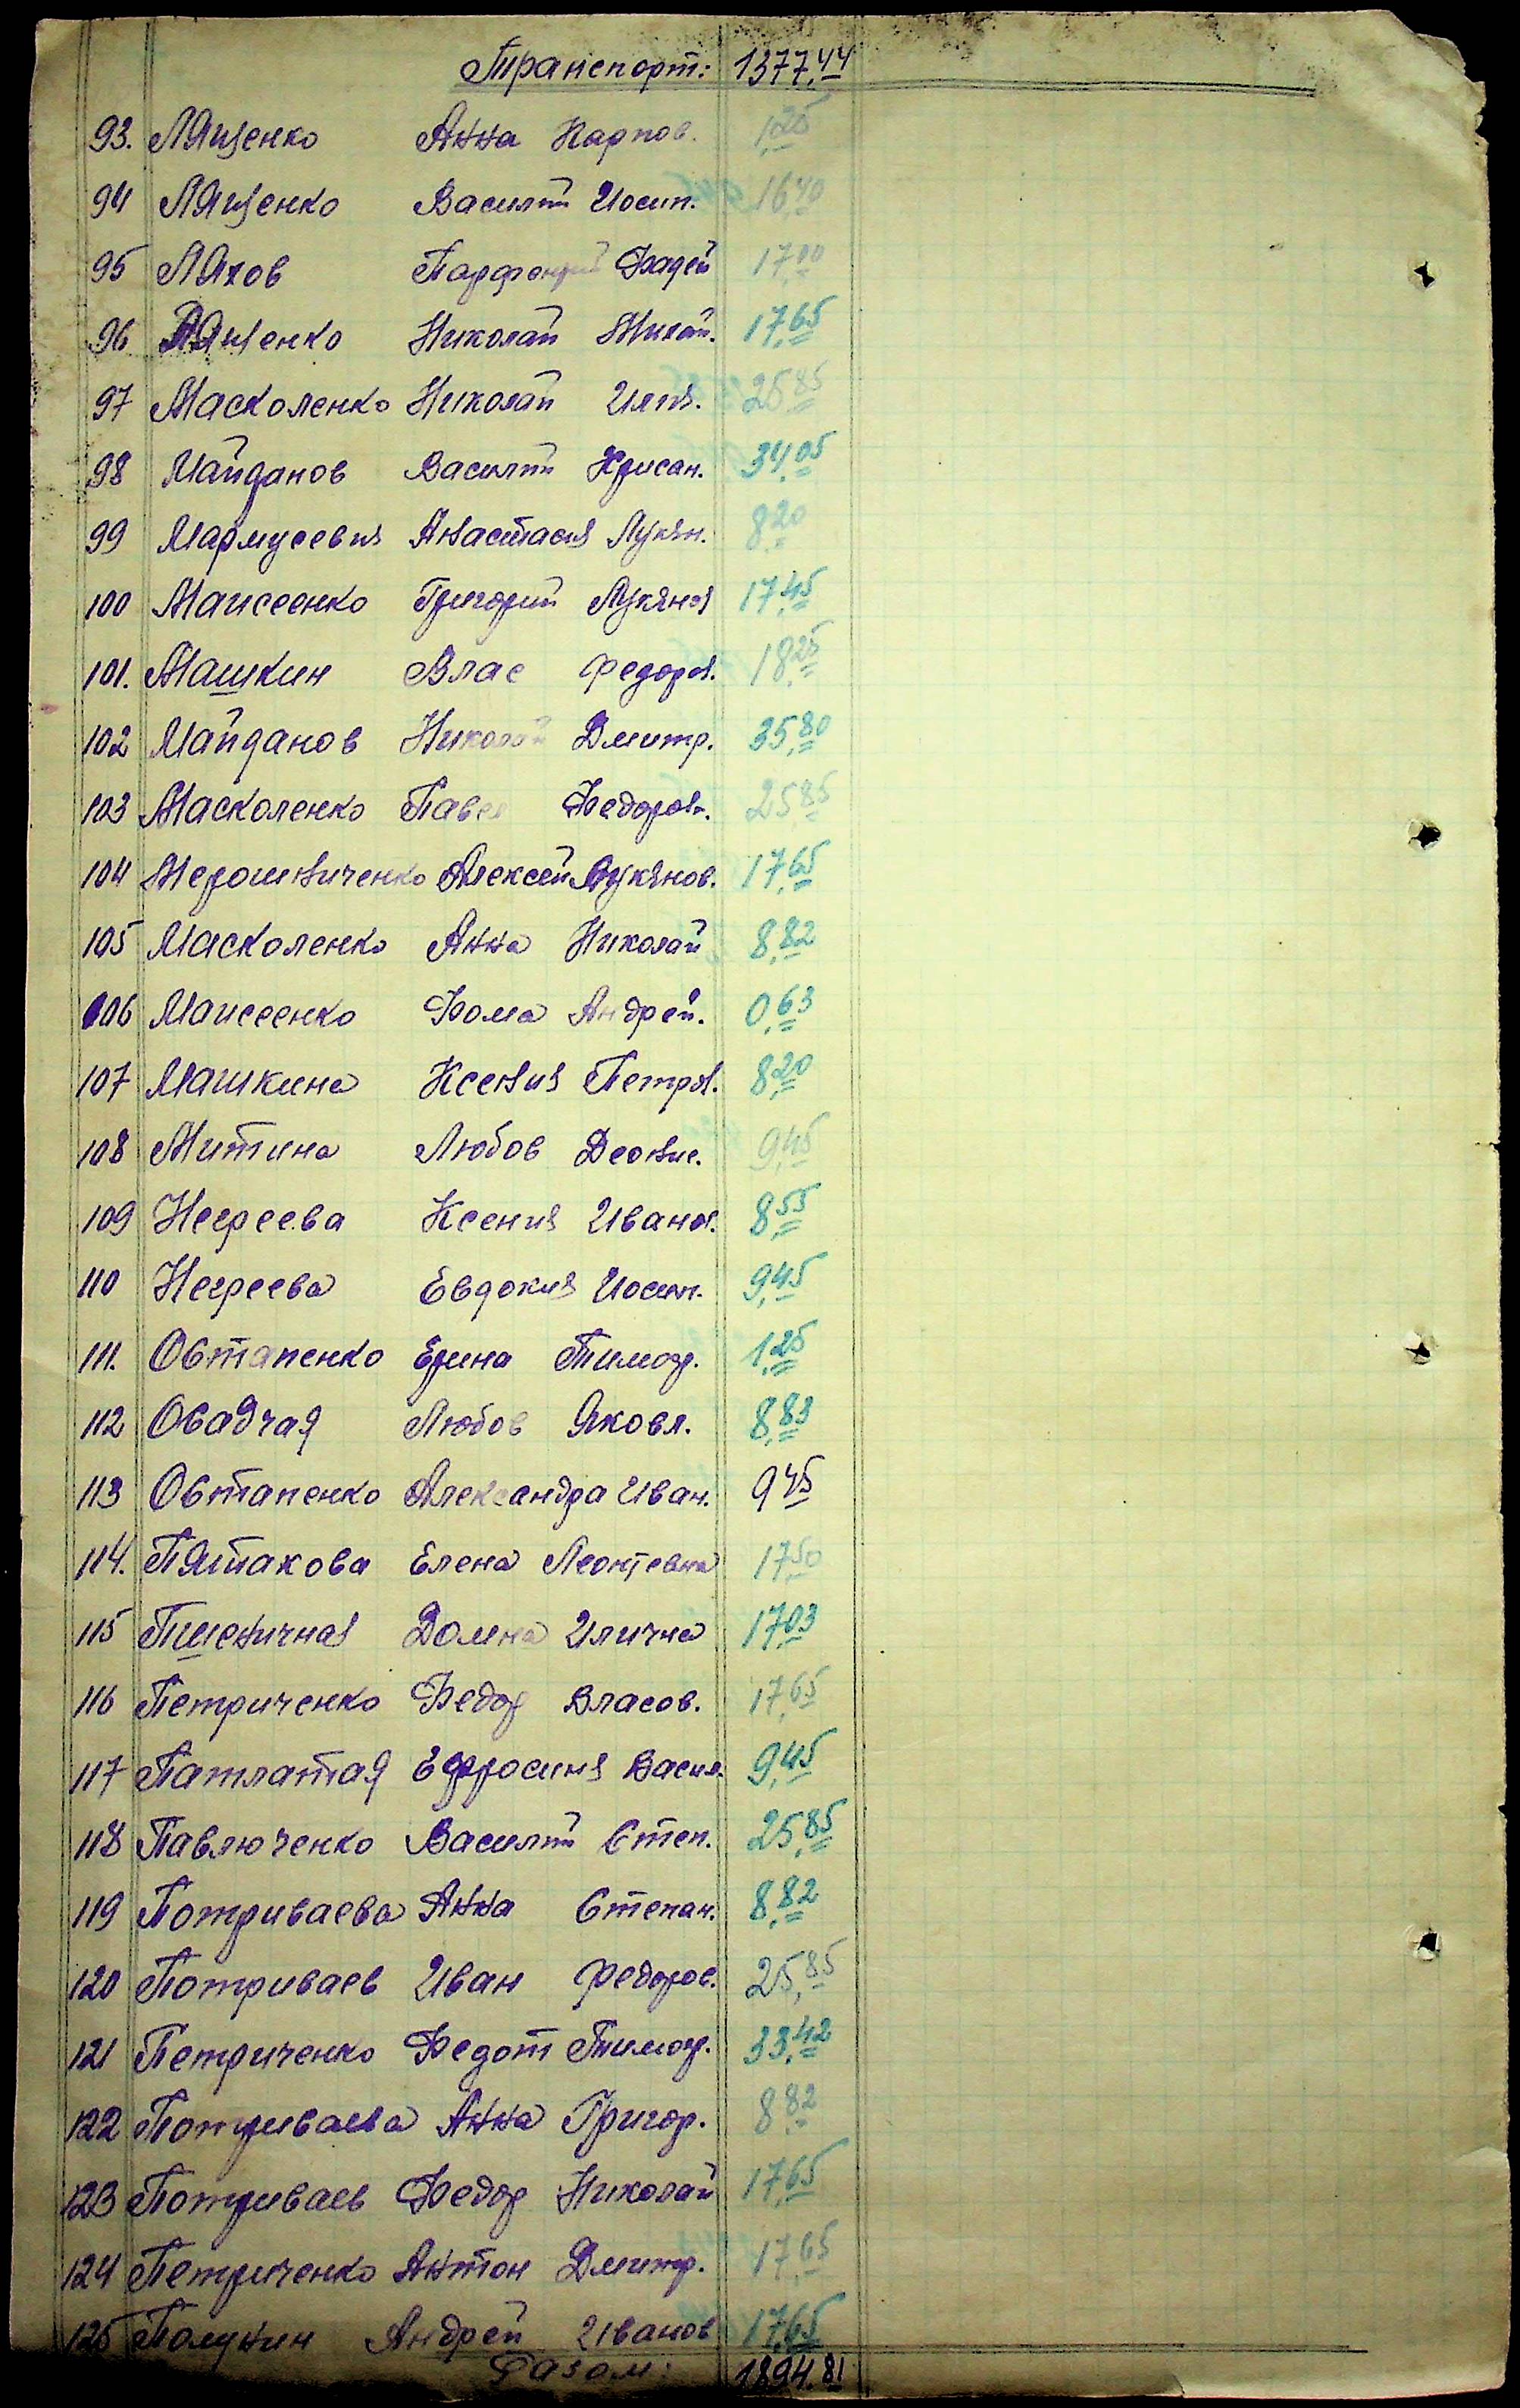 Транспорт: 1377,44
93. Лященко Анна Карпов. 1,25
94 Лященко Василий Иосип. 16,40
95 Ляхов Парфений Фадей 17,00
96 Лященко Николай Михай. 17,65
97 Масколенко Николай Илия. 25,85
98 Майданов Василий Хрисан. 34,05
99 Мармусевия Анастасия Лукян. 8,20
100 Маисеенко Григорий Лукянов 17,45
101. Машкин Влас Федоров. 18,25
102 Майданов Николай Дмитр. 35,80
103 Масколенко Павел Федоров. 25,85
104 Мерошниченко Алексей Лукянов. 17,65
105 Масколенко Анна Николай 8,82
106 Маисеенко Фома Андрей. 0,63
107 Машкина Ксения Петров. 8,20
108 Митина Любов Деонис. 9,45
109 Негреева Ксения Иванов. 8,55
110 Негреева Евдокия Иосип. 9,45
111. Овтапенко Ерина Тимоф. 1,25
112 Овадчая Любов Яковл. 8,83
113 Овтапенко Александра Иван. 9 45
114. Пятакова Елена Леонтевна 17,50
115 Пшеничная Домна Илична 17,03
116 Петриченко Федор Власов. 17,65
117 Патлатая Ефросиния Васил. 9,45
118 Павлюченко Василий Степ. 25,85
119 Потриваева Анна Степан. 8,82
120 Потриваев Иван Федоров. 25,85
121 Петриченко Федот Тимоф. 33,42
122 Потриваева Анна Григор. 8 82
123 Потриваев Федор Николай 17,65
124 Петриченко Антон Дмитр. 17,65
125 Полунин Андрей Иванов 17,65
Разом: 1894.81